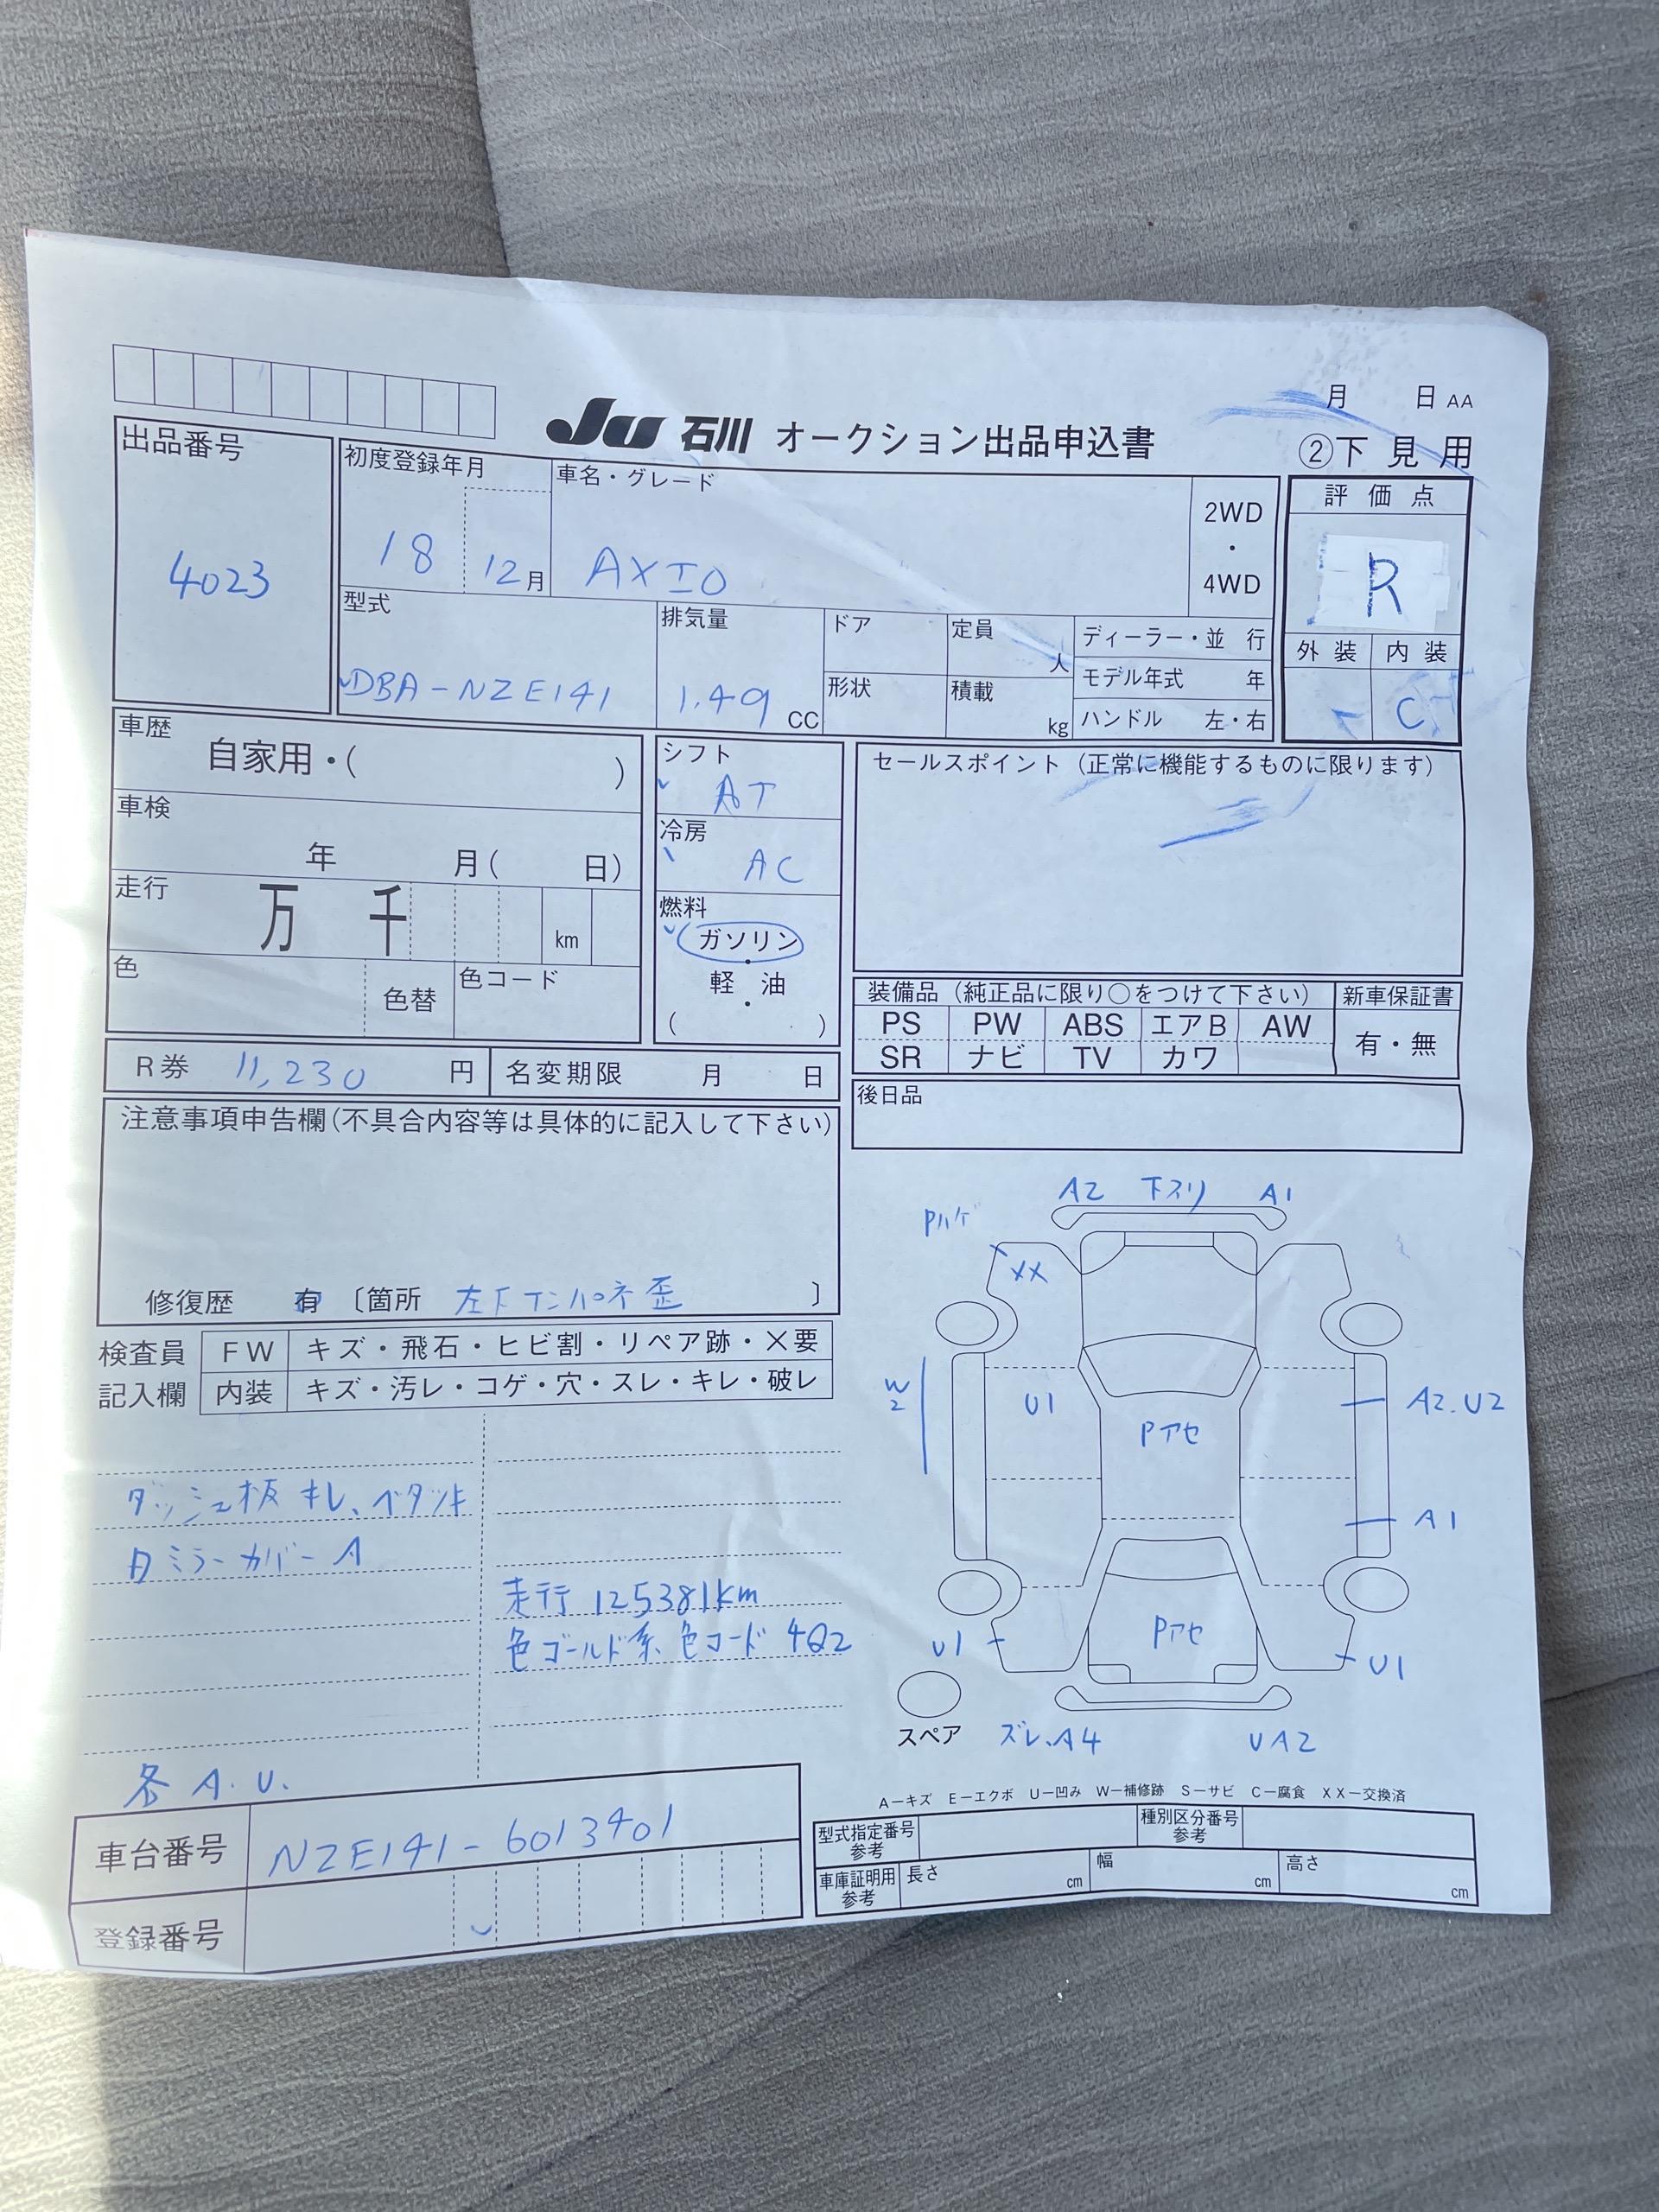 月 日 AA
JU 石川 オークション出品申込書
②下見用
出品番号
4023
初度登録年月
18 12月
車名・グレード
AXIO
2WD
・
4WD
評価点
R
外装 内装
C
型式
DBA-NZE141
排気量
1.49 CC
ドア
定員
人
形状
積載
kg
ディーラー・並 行
モデル年式 年
ハンドル 左・右
車歴
自家用・( )
車検
年 月( 日)
走行
万 千 km
色
色替
色コード
シフト
AT
冷房
AC
燃料
ガソリン
・
軽 油
・
( )
セールスポイント(正常に機能するものに限ります)
装備品(純正品に限り○をつけて下さい) 新車保証書
PS PW ABS エアB AW
SR ナビ TV カワ
有・無
後日品
R券 11,230 円 名変期限 月 日
注意事項申告欄(不具合内容等は具体的に記入して下さい)
修復歴 有 〔箇所 〕
検査員
記入欄
FW キズ・飛石・ヒビ割・リペア跡・×要
内装 キズ・汚レ・コゲ・穴・スレ・キレ・破レ
ダッシュ板 キレ、ベタツキ
ミラーカバー A
走行 125381km
色ゴールド系 色コード 4Q2
各 A.U.
A2 下スリ A1
Pハゲ
XX
W2
U1
Pアセ
A2.U2
A1
U1
Pアセ
U1
スペア
ズレ、A4
UA2
A－キズ E－エクボ U－凹み W－補修跡 S－サビ C－腐食 XX－交換済
車台番号 NZE141-6013401
登録番号
型式指定番号
参考
種別区分番号
参考
車庫証明用
参考
長さ cm
幅 cm
高さ cm